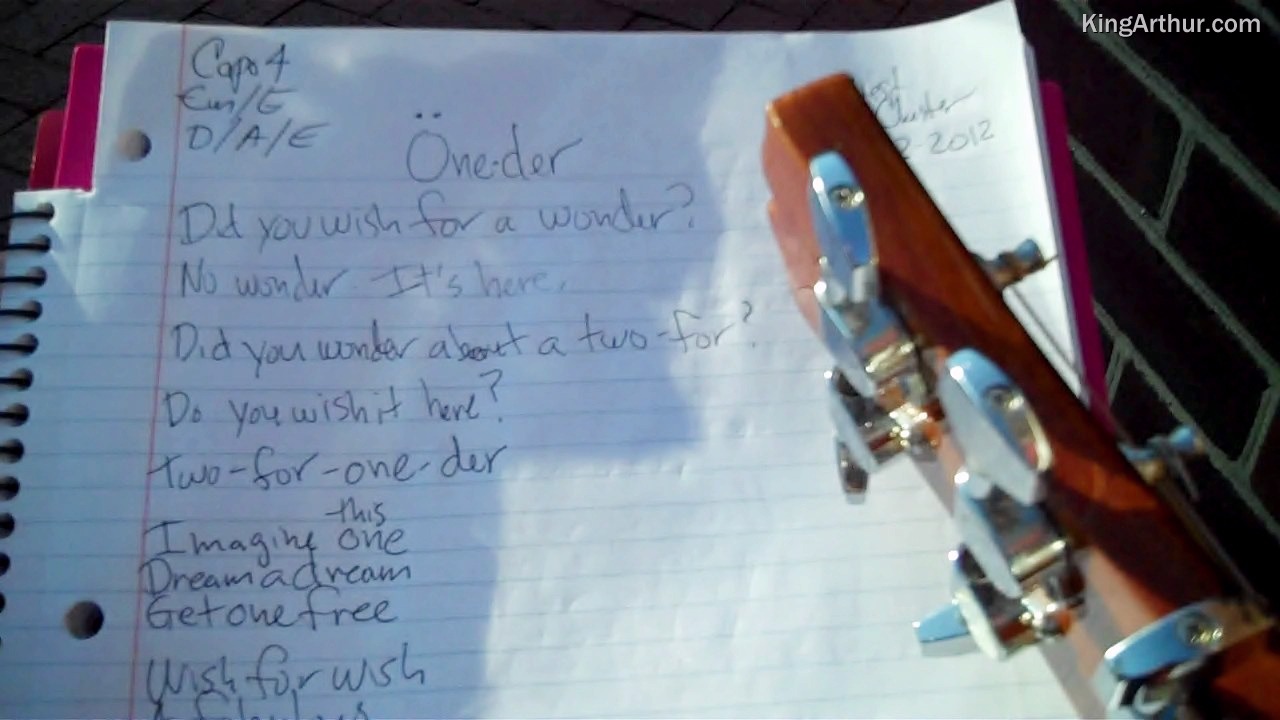 KingArthur.com
Capo 4
Em/E
D/A/E
2-2012
Öne-der
Did you wish for a wonder?
No wonder. It's here.
Did you wonder about a two-for?
Do you wish it here?
two-for-one-der
this
Imagine one
Dream a dream
Get one free
Wish for wish